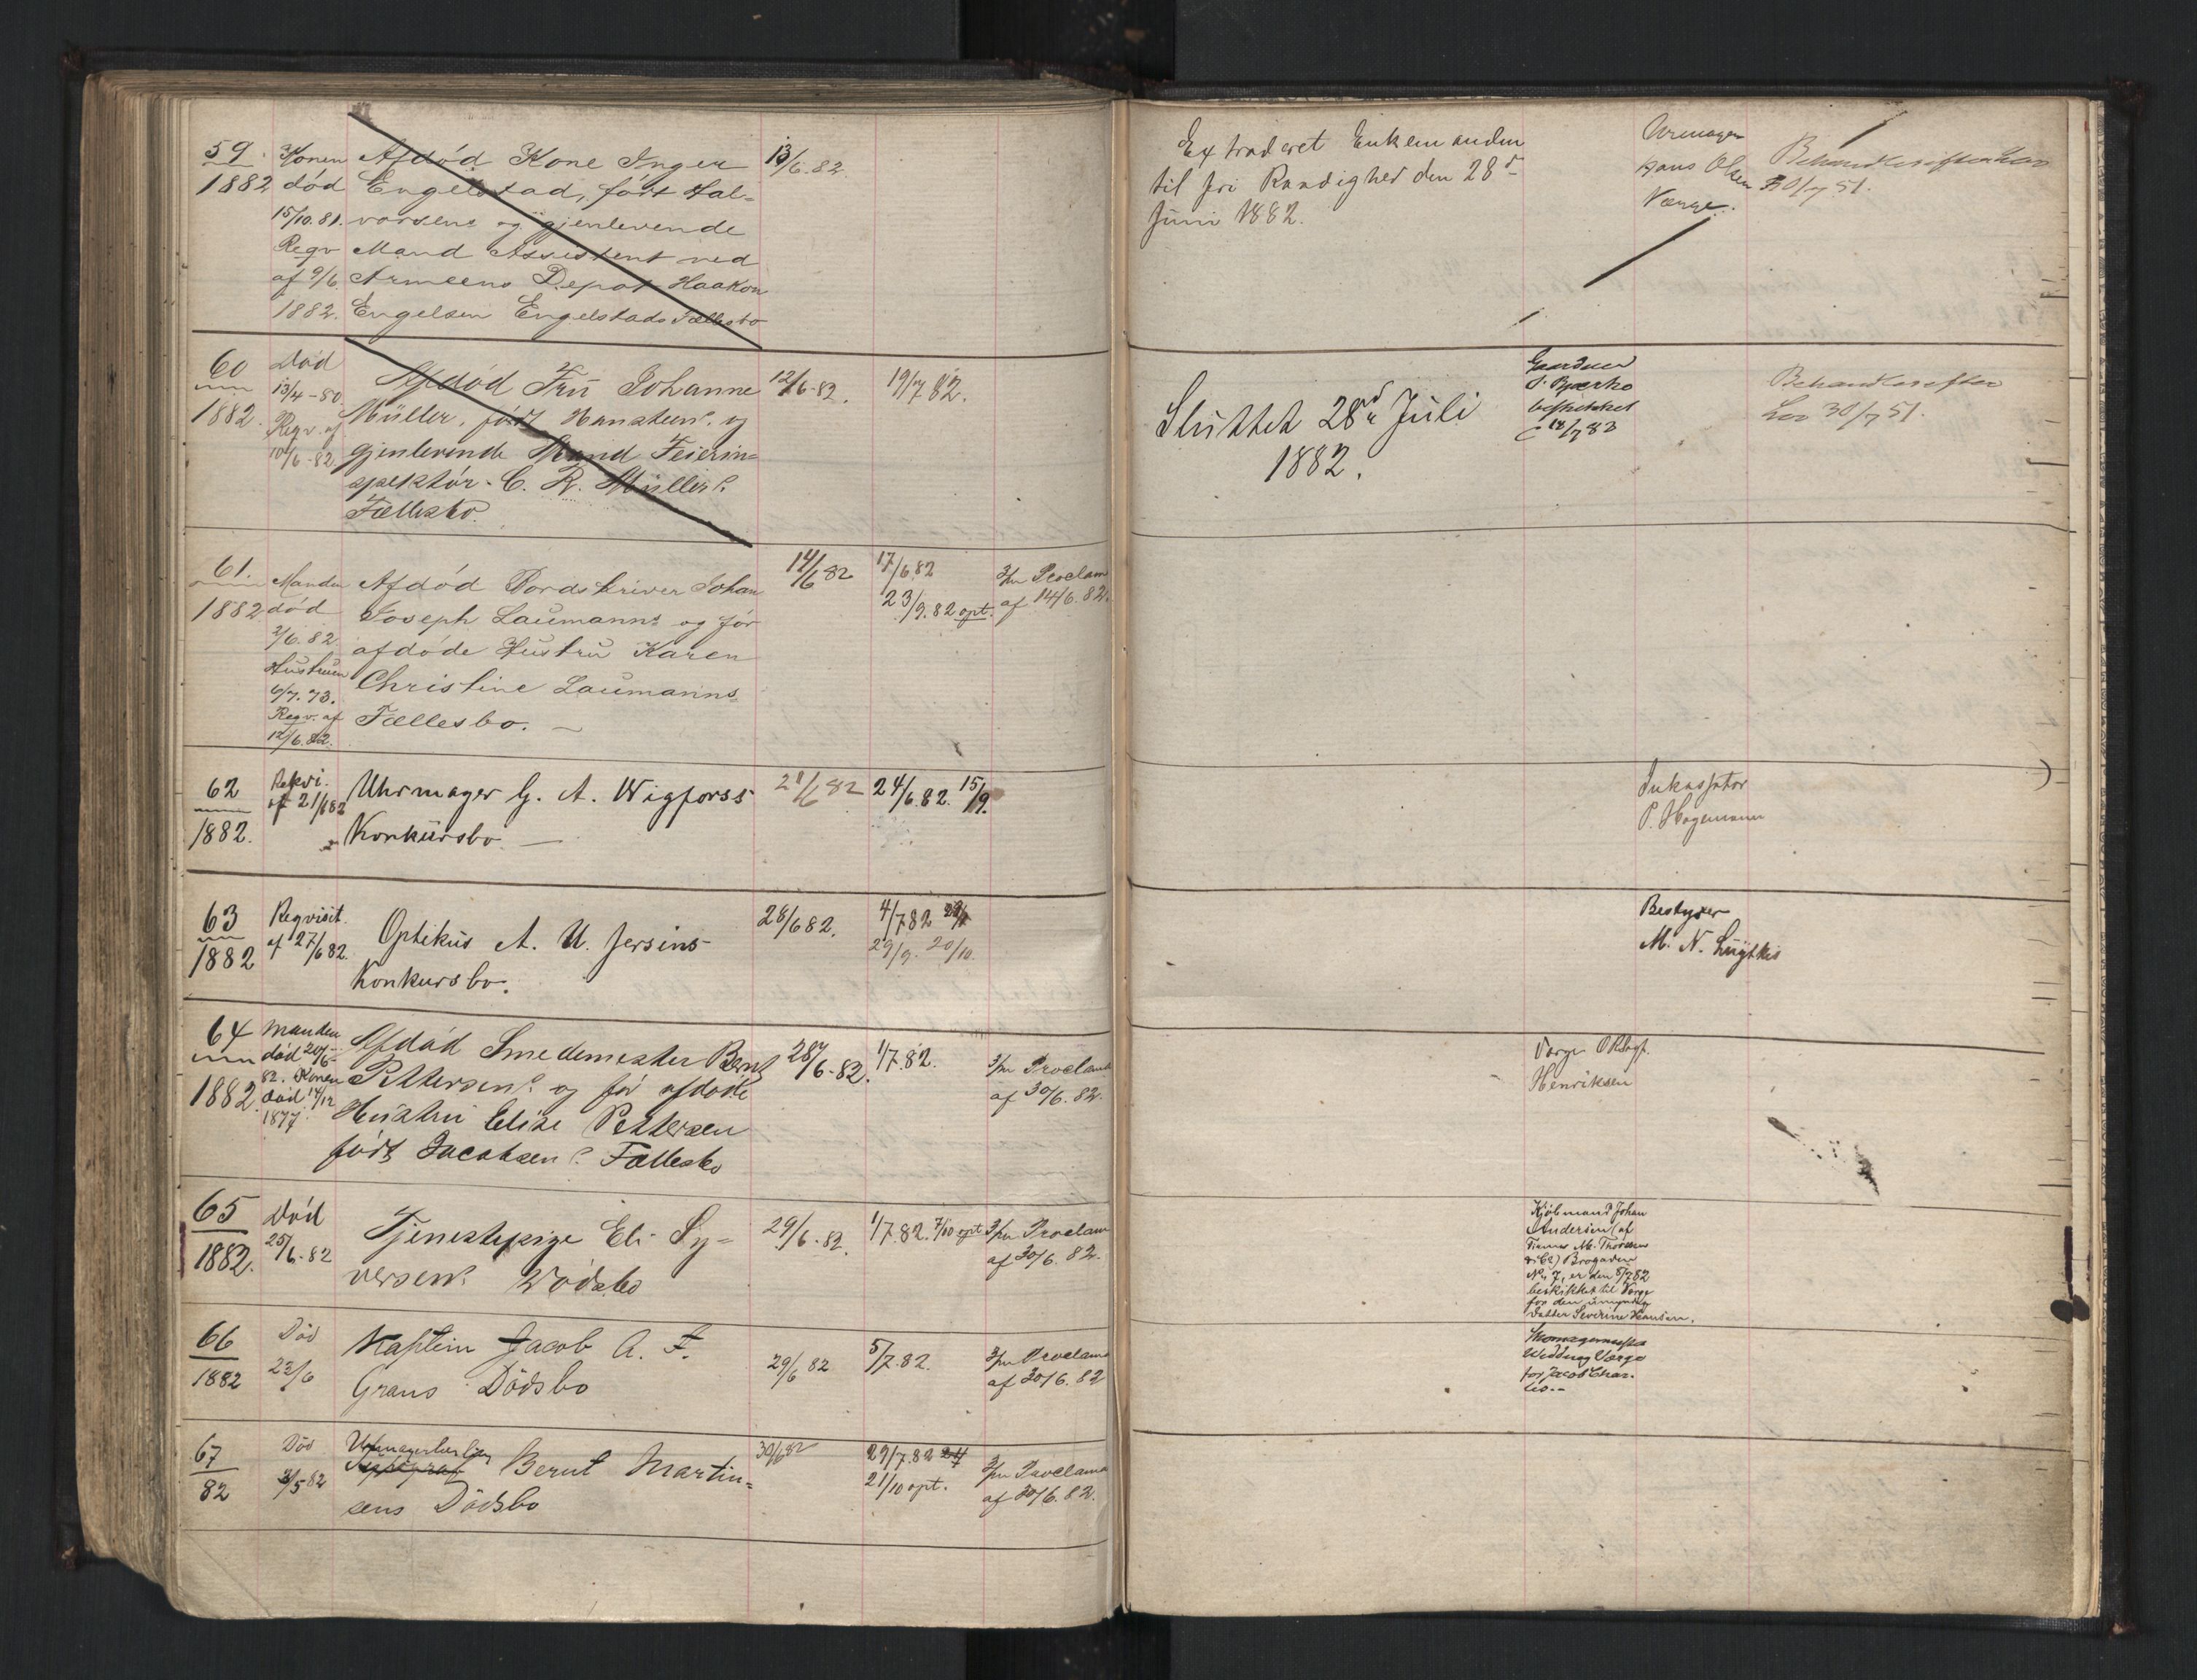 59
1882
Konen
død
15/10.81.
Regv
af 9/6
1882.
Afdød Kone Inger
Engelstad, født Hal-
vorsens og gjenlevende
Mand Assistent ved
Armeens Depot Haakon
Engelsen Engelstads Fællesbo
13/6.82.
Extraderet Enkemanden
til fri Raadighed den 28de
Juni 1882.
Urmager
Hans Olsen
Værge.
30/7 51.
60
1882.
Død
13/4-80.
Regv. af
10/6-82
Afdød Fru Johanne
Müller, født Hansteens og
gjenlevende Mand Feierin-
spektør C. R. Müllers
Fællesbo.
12/6-82.
19/7 82.
Sluttet 28de Juli
1882.
beskikket
Behandles efter
Lov 30/7 51.
61.
1882
Manden
død
2/6.82.
Hustruen
6/7.73.
Regv. af
12/6.82.
Afdød Tordskriver Johan
Joseph Laumanns og før
afdøde Hustru Karen
Christine Laumanns
Fællesbo. —
14/6 82
17/6.82
23/9.82 opt.
3/m Proclama
af 14/6.82.
62
1882.
Rekvi.
af 21/6 82
Uhrmager G. A. Wigforss
Konkursbo —
21/6 82
24/6.82. 15/9.
Inkassator
P. Hagemann
63
1882
Reqvisit.
af 27/6 82.
Optikus A. U. Jersins
Konkursbo.
28/6 82.
4/7 82
29/9. 20/10.
Bestyrer
M. N.
64
1882.
Manden
død 20/6-
82. Konen
død 14/12
1877.
Afdød Smedemester Bernt
Pettersens og før afdøde
Hustru Elise Pettersen
født Jacobsens Fællesbo
28/6-82.
1/7.82.
3/m Proclama
af 30/6.82.
Værge
Henriksen
65
1882.
Død
25/6-82
Tjenestepige Eli Sy-
versens Dødsbo
29/6-82.
1/7.82. 7/10 opt
3/m Proclama
af 30/6.82.
Kjøbmand Johan
Andersen (af
Firma M. Thoresen
& Co) Brogaden
No 7, er den 5/7 82
beskikket til Værge
for den umyndige
Datter Severine Hansen.
66
1882
Død
23/6
Kaptein Jacob A. F.
Grans Dødsbo
29/6 82
5/7.82.
3/m Proclama
af 30/6.82
Skomagermester
Værge
for Jacob Char-
les.-
67
82
Død
Bernt Martin-
sens Dødsbo
30/6 82
29/7.82
21/10 opt.
3/m Proclama
af 30/6.82.